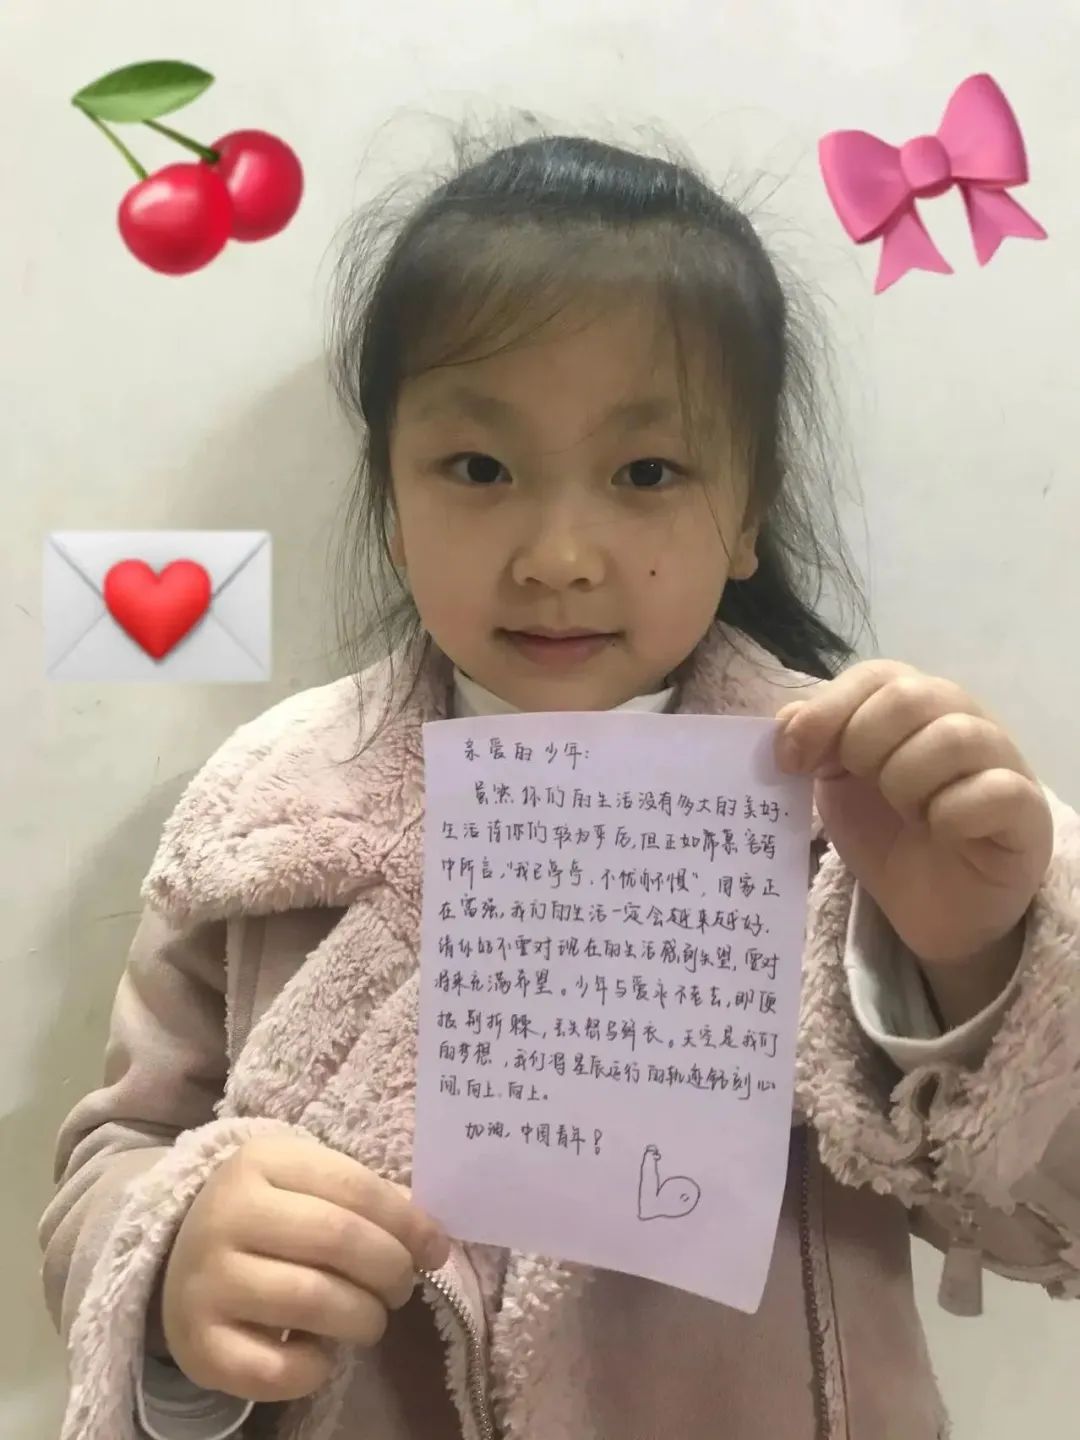 亲爱的少年：
虽然你们的生活没有多大的美好，
生活请你们较为平凡，但正如席慕容诗
中所言，“我已亭亭，不忧亦不惧”，国家正
在富强，我们的生活一定会越来越好，
请你们不要对现在的生活感到失望，要对
将来充满希望。少年与爱永不老去，即便
披荆折躁，丢失怒马鲜衣。天空是我们
的梦想，我们将星辰运行的轨迹铭刻心
间，向上，向上。
加油，中国青年！